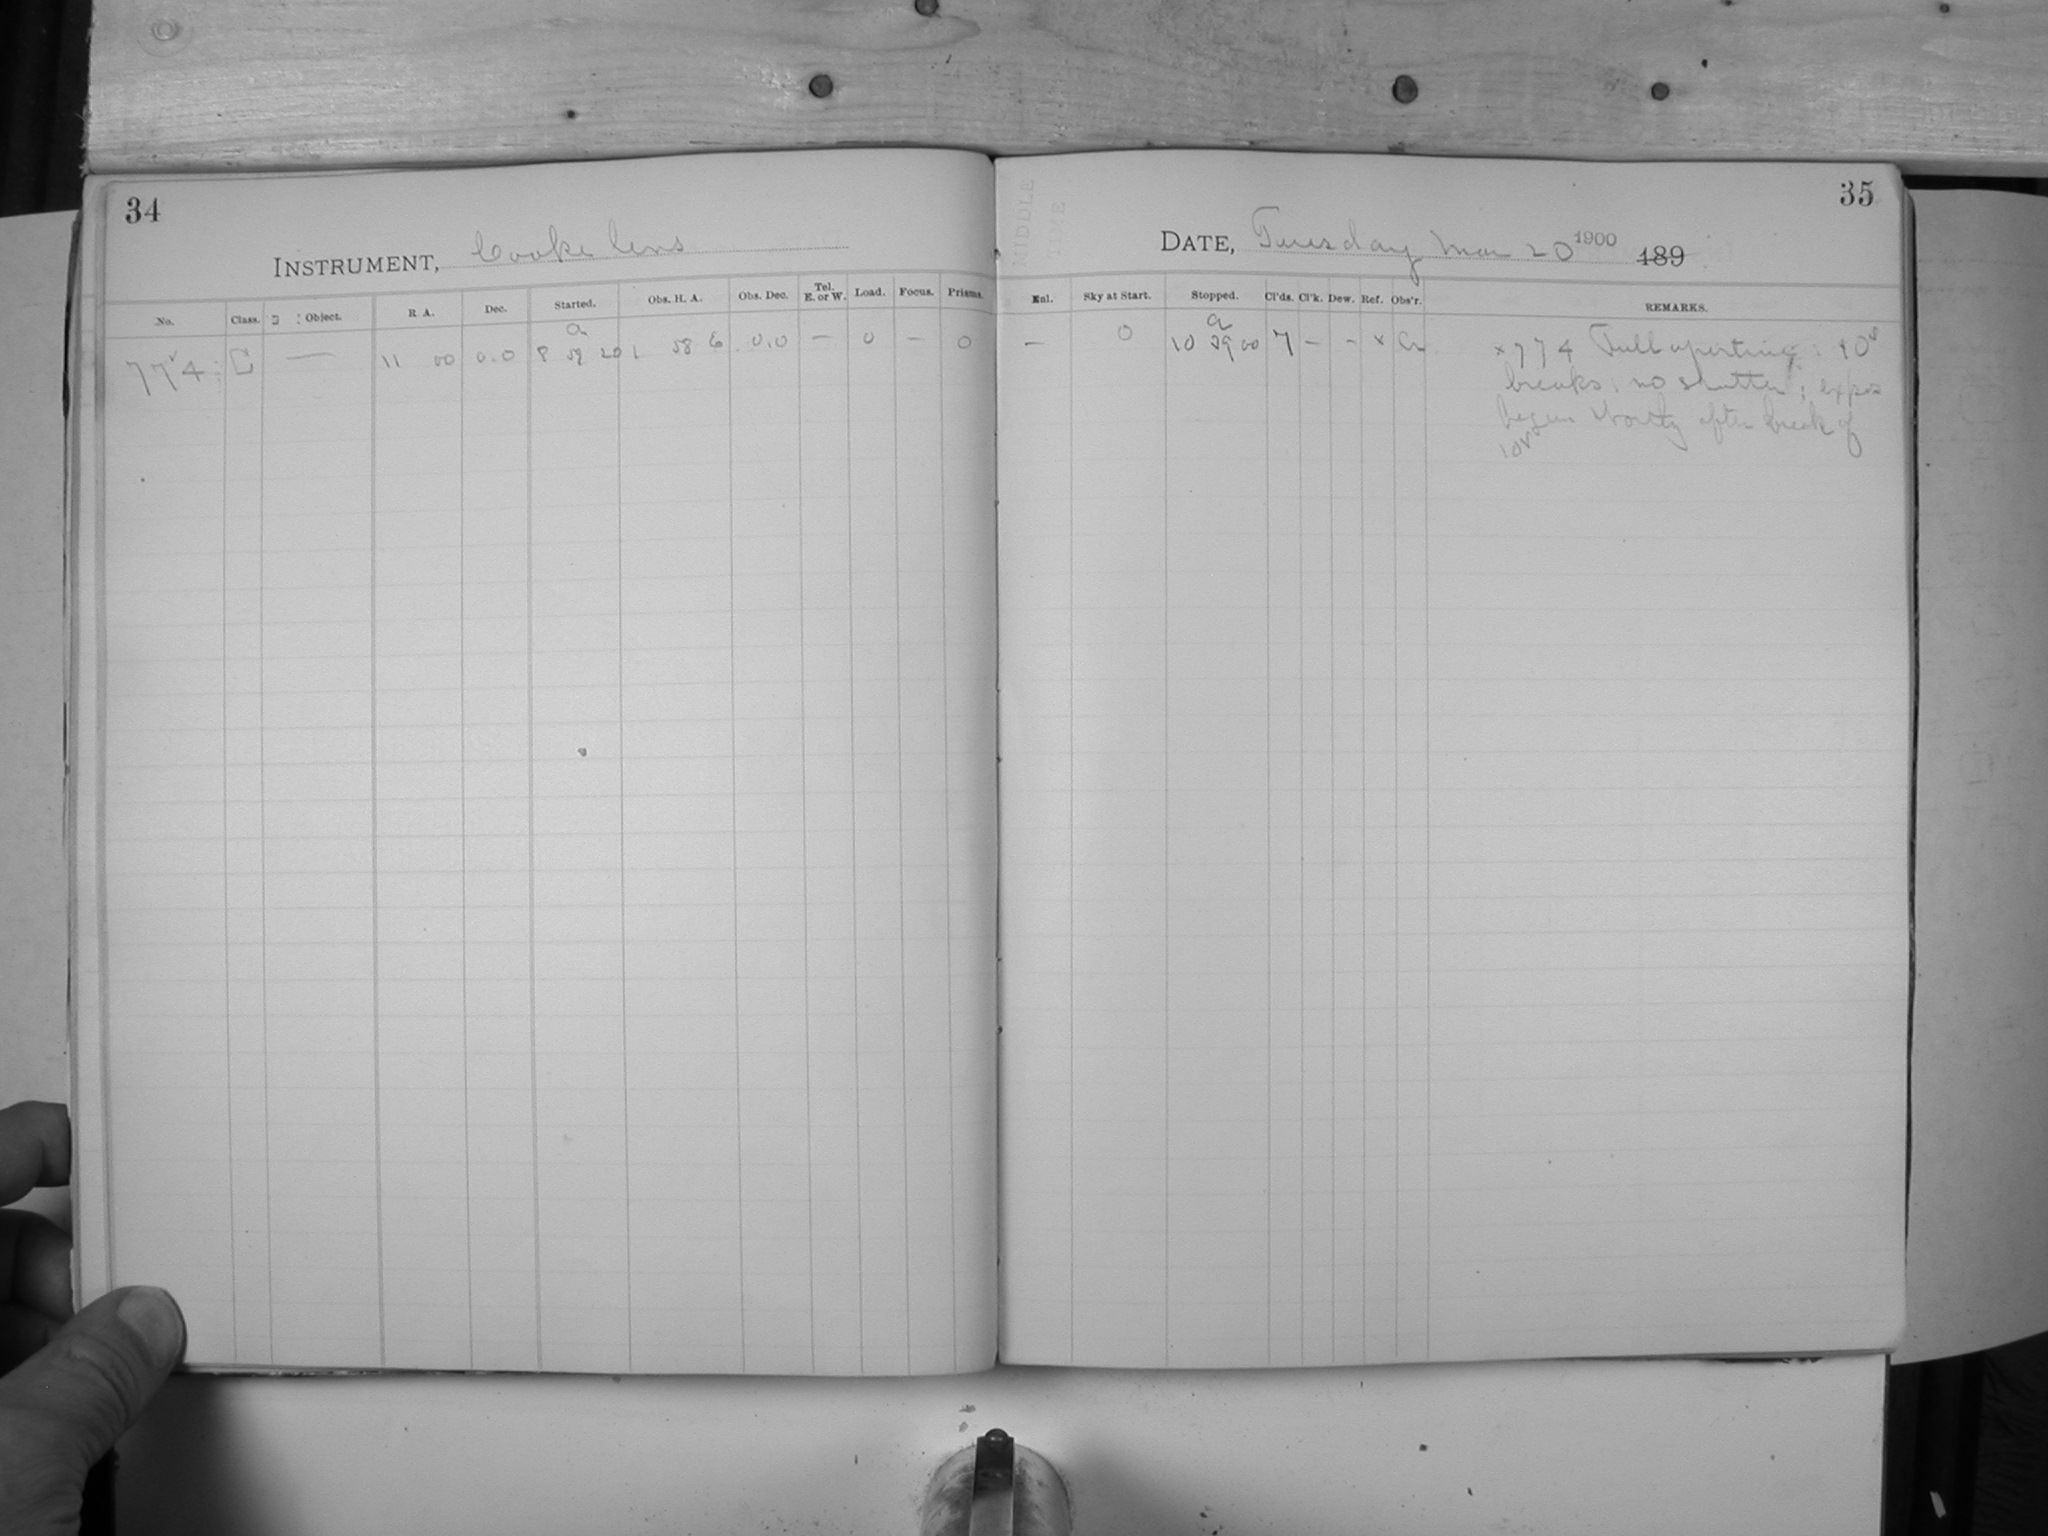 34
35
INSTRUMENT, Cooke lens
DATE, Tuesday Mar 20 1900 189
No. Class. Object. R. A. Dec. Started. Obs. H. A. Obs. Dec. Tel. E. or W. Load. Focus. Prisms.
Sky at Start. Stopped. Cl'ds. Cl'k. Dew. Ref. Obs'r. REMARKS.
a
774 C — 11 00 0.0 8 59 20 1 58 6 0.0 — 0 — 0
a
— 0 10 59 00 7 – – x x 774 Full aperture; 10s
breaks; no shutter; expos
began shortly after break of
10s